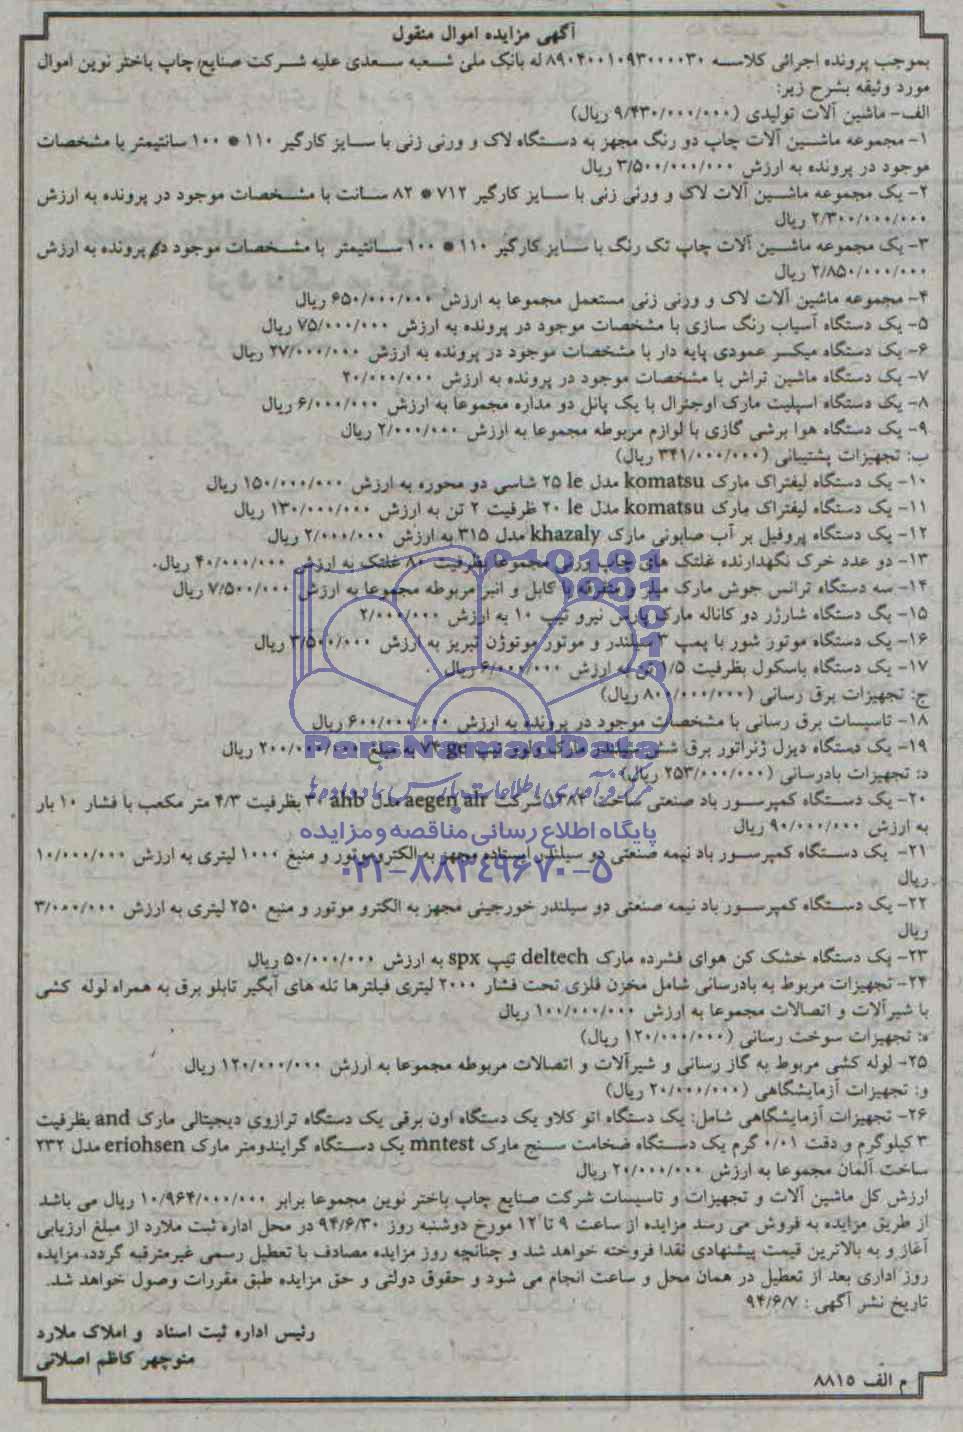 آگهی مزایده اموال منقول
بموجب پرونده اجرائی کلاسه ۸۹۰۴۰۰۱۰۹۳۰۰۰۰۳۰ له بانک ملی شعبه سعدی علیه شرکت صنایع چاپ باختر نوین اموال
مورد وثیقه بشرح زیر:
الف- ماشین آلات تولیدی (۹/۴۳۰/۰۰۰/۰۰۰ ریال)
۱- مجموعه ماشین آلات چاپ دو رنگ مجهز به دستگاه لاک و ورنی زنی با سایز کارگیر ۱۱۰ * ۱۰۰ سانتیمتر با مشخصات
موجود در پرونده به ارزش ۳/۵۰۰/۰۰۰/۰۰۰ ریال
۲- یک مجموعه ماشین آلات لاک و ورنی زنی با سایز کارگیر ۷۱۲ * ۸۲ سانت با مشخصات موجود در پرونده به ارزش
۲/۳۰۰/۰۰۰/۰۰۰ ریال
۳- یک مجموعه ماشین آلات چاپ تک رنگ با سایز کارگیر ۱۱۰ * ۱۰۰ سانتیمتر با مشخصات موجود در پرونده به ارزش
۲/۸۵۰/۰۰۰/۰۰۰ ریال
۴- مجموعه ماشین آلات لاک و ورنی زنی مستعمل مجموعا به ارزش ۶۵۰/۰۰۰/۰۰۰ ریال
۵- یک دستگاه آسیاب رنگ سازی با مشخصات موجود در پرونده به ارزش ۷۵/۰۰۰/۰۰۰ ریال
۶- یک دستگاه میکسر عمودی پایه دار با مشخصات موجود در پرونده به ارزش ۲۷/۰۰۰/۰۰۰ ریال
۷- یک دستگاه ماشین تراش با مشخصات موجود در پرونده به ارزش ۲۰/۰۰۰/۰۰۰
۸- یک دستگاه اسپلیت مارک اوجنرال با یک پانل دو مداره مجموعا به ارزش ۶/۰۰۰/۰۰۰ ریال
۹- یک دستگاه هوا برشی گازی با لوازم مربوطه مجموعا به ارزش ۲/۰۰۰/۰۰۰ ریال
ب: تجهیزات پشتیبانی (۳۴۱/۰۰۰/۰۰۰ ریال)
۱۰- یک دستگاه لیفتراک مارک komatsu مدل ۲۵ le شاسی دو محوره به ارزش ۱۵۰/۰۰۰/۰۰۰ ریال
۱۱- یک دستگاه لیفتراک مارک komatsu مدل ۲۰ le ظرفیت ۲ تن به ارزش ۱۳۰/۰۰۰/۰۰۰ ریال
۱۲- یک دستگاه پروفیل بر آب صابونی مارک khazaly مدل ۳۱۵ به ارزش ۲/۰۰۰/۰۰۰ ریال
۱۳- دو عدد خرک نگهدارنده غلتک های چاپ ورنی مجموعا بظرفیت ۸۰ غلتک به ارزش ۴۰/۰۰۰/۰۰۰ ریال.
۱۴- سه دستگاه ترانس جوش مارک میلر و متفرقه با کابل و انبر مربوطه مجموعا به ارزش ۷/۵۰۰/۰۰۰ ریال
۱۵- یک دستگاه شارژر دو کاناله مارک پارس نیرو تیپ ۱۰ به ارزش ۲/۰۰۰/۰۰۰
۱۶- یک دستگاه موتور شور با پمپ ۳ سیلندر و موتور موتوژن تبریز به ارزش ۳/۵۰۰/۰۰۰ ریال
۱۷- یک دستگاه باسکول بظرفیت ۱/۵ تن به ارزش ۶/۰۰۰/۰۰۰ ریال .
ج: تجهیزات برق رسانی (۸۰۰/۰۰۰/۰۰۰ ریال)
۱۸- تاسیسات برق رسانی با مشخصات موجود در پرونده به ارزش ۶۰۰/۰۰۰/۰۰۰ ریال
۱۹- یک دستگاه دیزل ژنراتور برق شش سیلندر مارک ولوو تیپ ۷۴ ge به مبلغ ۲۰۰/۰۰۰/۰۰۰ ریال
د: تجهیزات بادرسانی (۲۵۳/۰۰۰/۰۰۰ ریال)
۲۰- یک دستگاه کمپرسور باد صنعتی ساخت ۱۳۸۴ شرکت aegen alr مدل ۳۰ ahb بظرفیت ۴/۳ متر مکعب با فشار ۱۰ بار
به ارزش ۹۰/۰۰۰/۰۰۰ ریال
۲۱- یک دستگاه کمپرسور باد نیمه صنعتی دو سیلندر ایستاده مجهز به الکتروموتور و منبع ۱۰۰۰ لیتری به ارزش ۱۰/۰۰۰/۰۰۰
ریال
۲۲- یک دستگاه کمپرسور باد نیمه صنعتی دو سیلندر خورجینی مجهز به الکترو موتور و منبع ۲۵۰ لیتری به ارزش ۳/۰۰۰/۰۰۰
ریال
۲۳- یک دستگاه خشک کن هوای فشرده مارک deltech تیپ spx به ارزش ۵۰/۰۰۰/۰۰۰ ریال
۲۴- تجهیزات مربوط به بادرسانی شامل مخزن فلزی تحت فشار ۲۰۰۰ لیتری فیلترها تله های آبگیر تابلو برق به همراه لوله کشی
با شیرآلات و اتصالات مجموعا به ارزش ۱۰۰/۰۰۰/۰۰۰ ریال
ه: تجهیزات سوخت رسانی (۱۲۰/۰۰۰/۰۰۰ ریال)
۲۵- لوله کشی مربوط به گاز رسانی و شیرآلات و اتصالات مربوطه مجموعا به ارزش ۱۲۰/۰۰۰/۰۰۰ ریال
و: تجهیزات آزمایشگاهی (۲۰/۰۰۰/۰۰۰ ریال)
۲۶- تجهیزات آزمایشگاهی شامل: یک دستگاه اتو کلاو یک دستگاه اون برقی یک دستگاه ترازوی دیجیتالی مارک and بظرفیت
۳ کیلوگرم و دقت ۰/۰۱ گرم یک دستگاه ضخامت سنج مارک mntest یک دستگاه گرایندومتر مارک eriohsen مدل ۲۳۲
ساخت آلمان مجموعا به ارزش ۲۰/۰۰۰/۰۰۰ ریال
ارزش کل ماشین آلات و تجهیزات و تاسیسات شرکت صنایع چاپ باختر نوین مجموعا برابر ۱۰/۹۶۴/۰۰۰/۰۰۰ ریال می باشد
از طریق مزایده به فروش می رسد مزایده از ساعت ۹ تا ۱۲ مورخ دوشنبه روز ۹۴/۶/۳۰ در محل اداره ثبت ملارد از مبلغ ارزیابی
آغاز و به بالاترین قیمت پیشنهادی نقدا فروخته خواهد شد و چنانچه روز مزایده مصادف با تعطیل رسمی غیرمترقبه گردد، مزایده
روز اداری بعد از تعطیل در همان محل و ساعت انجام می شود و حقوق دولتی و حق مزایده طبق مقررات وصول خواهد شد.
تاریخ نشر آگهی : ۹۴/۶/۷
رئیس اداره ثبت اسناد و املاک ملارد
منوچهر کاظم اصلانی
م الف ۸۸۱۵
ParsNamadData
مرکز فرآوری اطلاعات پارس نماد داده ها
پایگاه اطلاع رسانی مناقصه و مزایده
۰۲۱-۸۸۳۴۹۶۷۰-۵